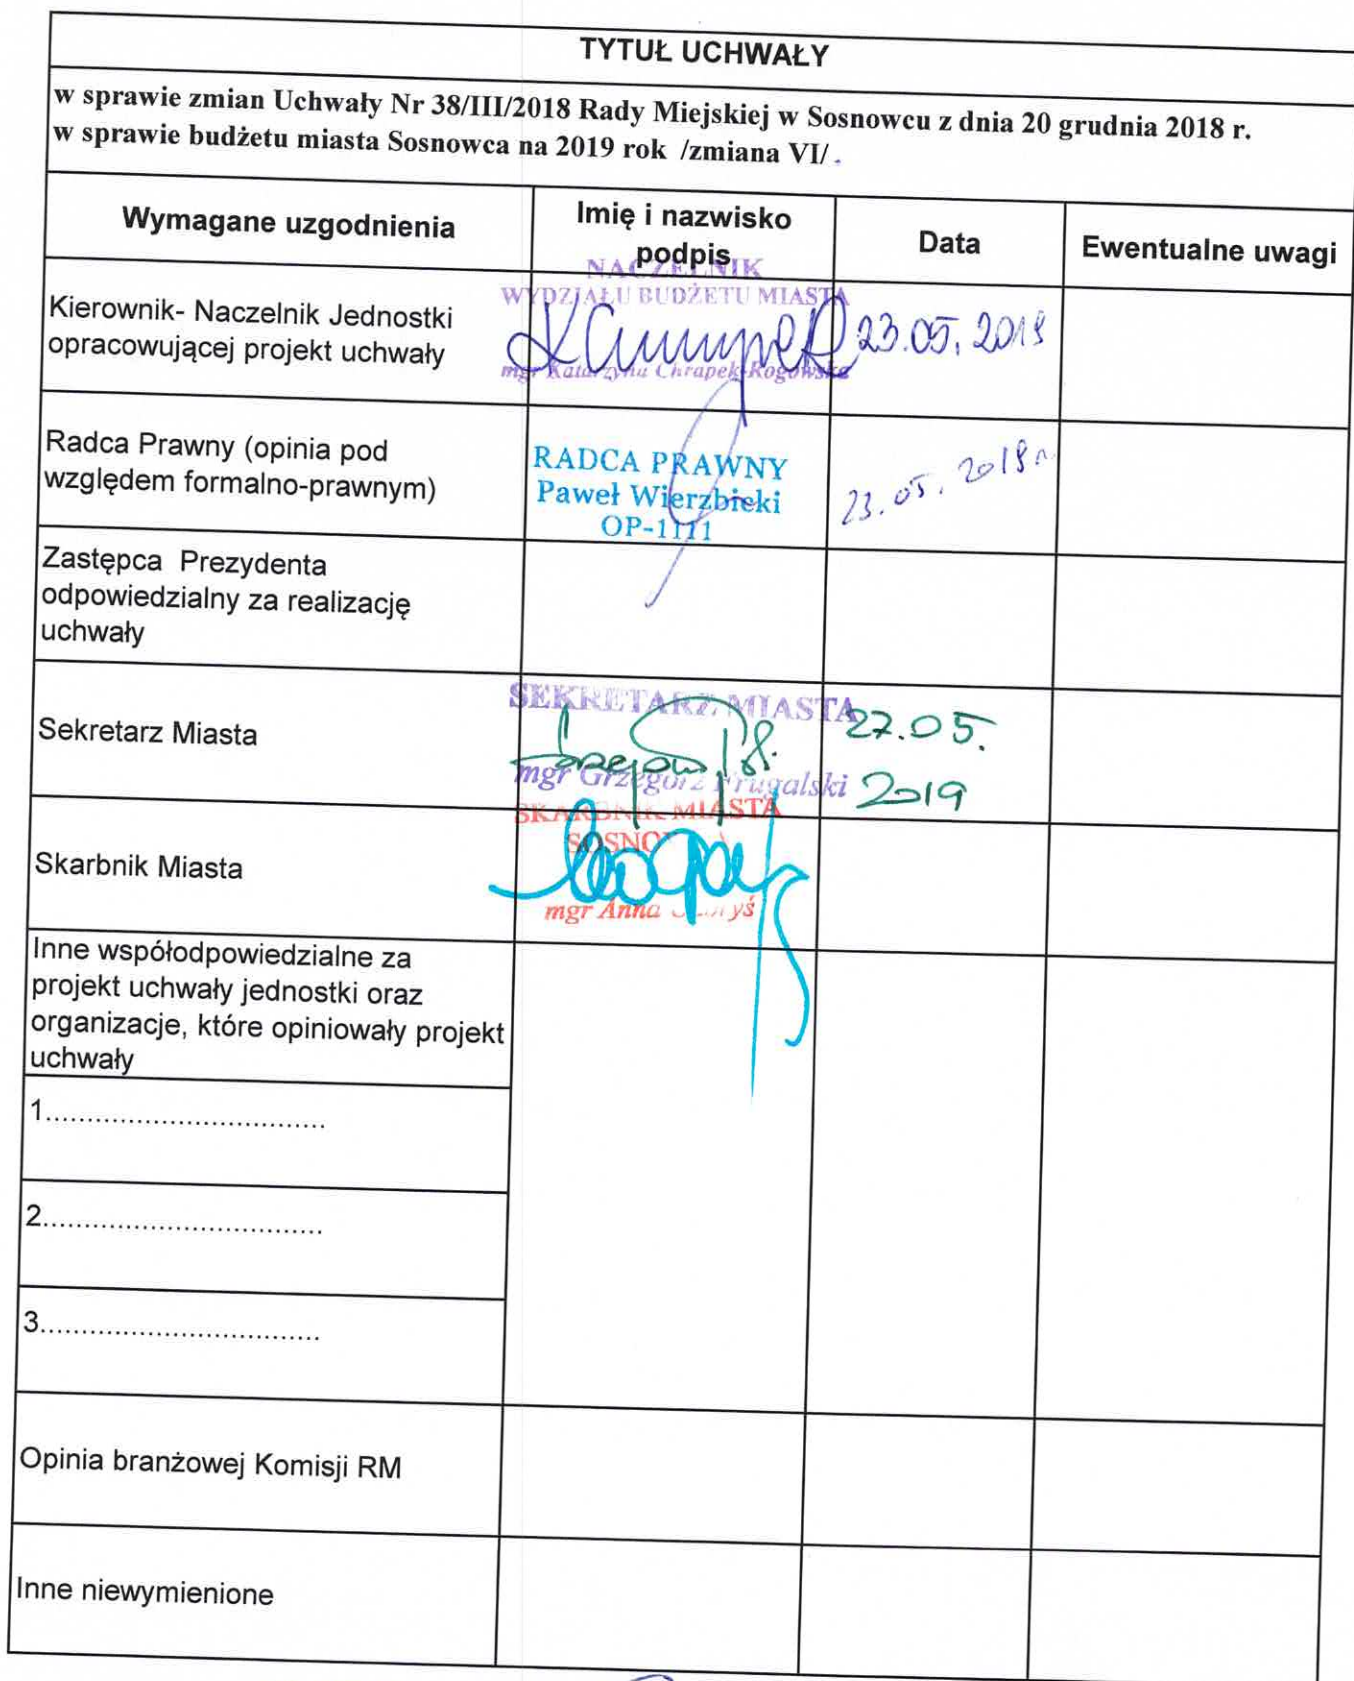 TYTUŁ UCHWAŁY
w sprawie zmian Uchwały Nr 38/III/2018 Rady Miejskiej w Sosnowcu z dnia 20 grudnia 2018 r.
w sprawie budżetu miasta Sosnowca na 2019 rok /zmiana VI/ .
Wymagane uzgodnienia
Imię i nazwisko
podpis
Data
Ewentualne uwagi
Kierownik- Naczelnik Jednostki
opracowującej projekt uchwały
NACZELNIK
WYDZIAŁU BUDŻETU MIASTA
mgr Katarzyna Chrapek-Rogowska
23.05.2019
Radca Prawny (opinia pod
względem formalno-prawnym)
RADCA PRAWNY
Paweł Wierzbicki
OP-1111
23.05.2019 r.
Zastępca Prezydenta
odpowiedzialny za realizację
uchwały
Sekretarz Miasta
SEKRETARZ MIASTA
mgr Grzegorz Frugalski
27.05.
2019
Skarbnik Miasta
SKARBNIK MIASTA
mgr Anna
Inne współodpowiedzialne za
projekt uchwały jednostki oraz
organizacje, które opiniowały projekt
uchwały
1..................................
2..................................
3..................................
Opinia branżowej Komisji RM
Inne niewymienione